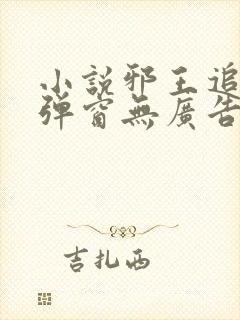 小說邪王追
彈窗無廣告
吉扎西